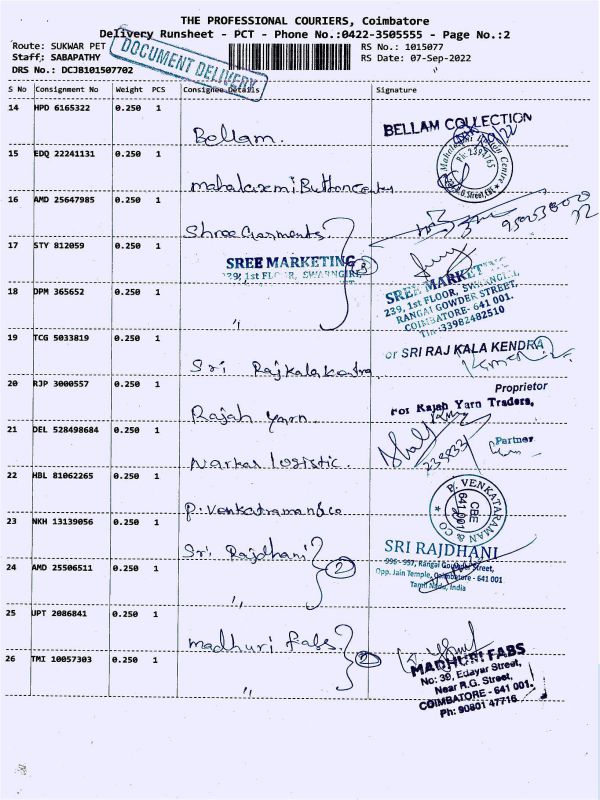 THE PROFESSIONAL COURIERS, Coimbatore
Delivery Runsheet - PCT - Phone No.:0422-3505555 - Page No.:2
Route: SUKWAR PET
RS No.: 1015077
Staff: SABAPATHY
RS Date: 07-Sep-2022
DRS No.: DCJB101507702
DOCUMENT DELIVERY
S No Consignment No Weight PCS Consignee Details Signature
14 HPD 6165322 0.250 1
Bellam.
BELLAM COLLECTION
15 EDQ 22241131 0.250 1
Mahalaxmi Button Centre
16 AMD 25647985 0.250 1
Shree Garments
17 STY 812059 0.250 1
SREE MARKETING
239, 1st FLOOR, SWARNGIRI
3
SREE MARKETING
239, 1st FLOOR, SWARNGIRI,
RANGAI GOWDER STREET,
COIMBATORE- 641 001.
Tin -33982482510
18 DPM 365652 0.250 1
"
19 TCG 5033819 0.250 1
Sri Rajkalakendra
or SRI RAJ KALA KENDRA
20 RJP 3000557 0.250 1
Proprietor
Rajah Yarn.
For Rajah Yarn Traders,
21 DEL 528498684 0.250 1
Partner
Narkar Logistic.
22 HBL 81062265 0.250 1
P. Venkatraman & co
B. VENKATARAMAN & CO
CBE
641 001
23 NKH 13139056 0.250 1
Sri Rajdhani
2
SRI RAJDHANI
996 - 997, Rangai Gowder Street,
Opp. Jain Temple, Coimbatore - 641 001
Tamil Nadu, India
24 AMD 25506511 0.250 1
"
25 UPT 2086841 0.250 1
Madhuri Fabs
MADHURI FABS
No: 39, Edayar Street,
Near R.G. Street,
COIMBATORE - 641 001.
Ph: 90801 47716
26 TMI 10057303 0.250 1
"